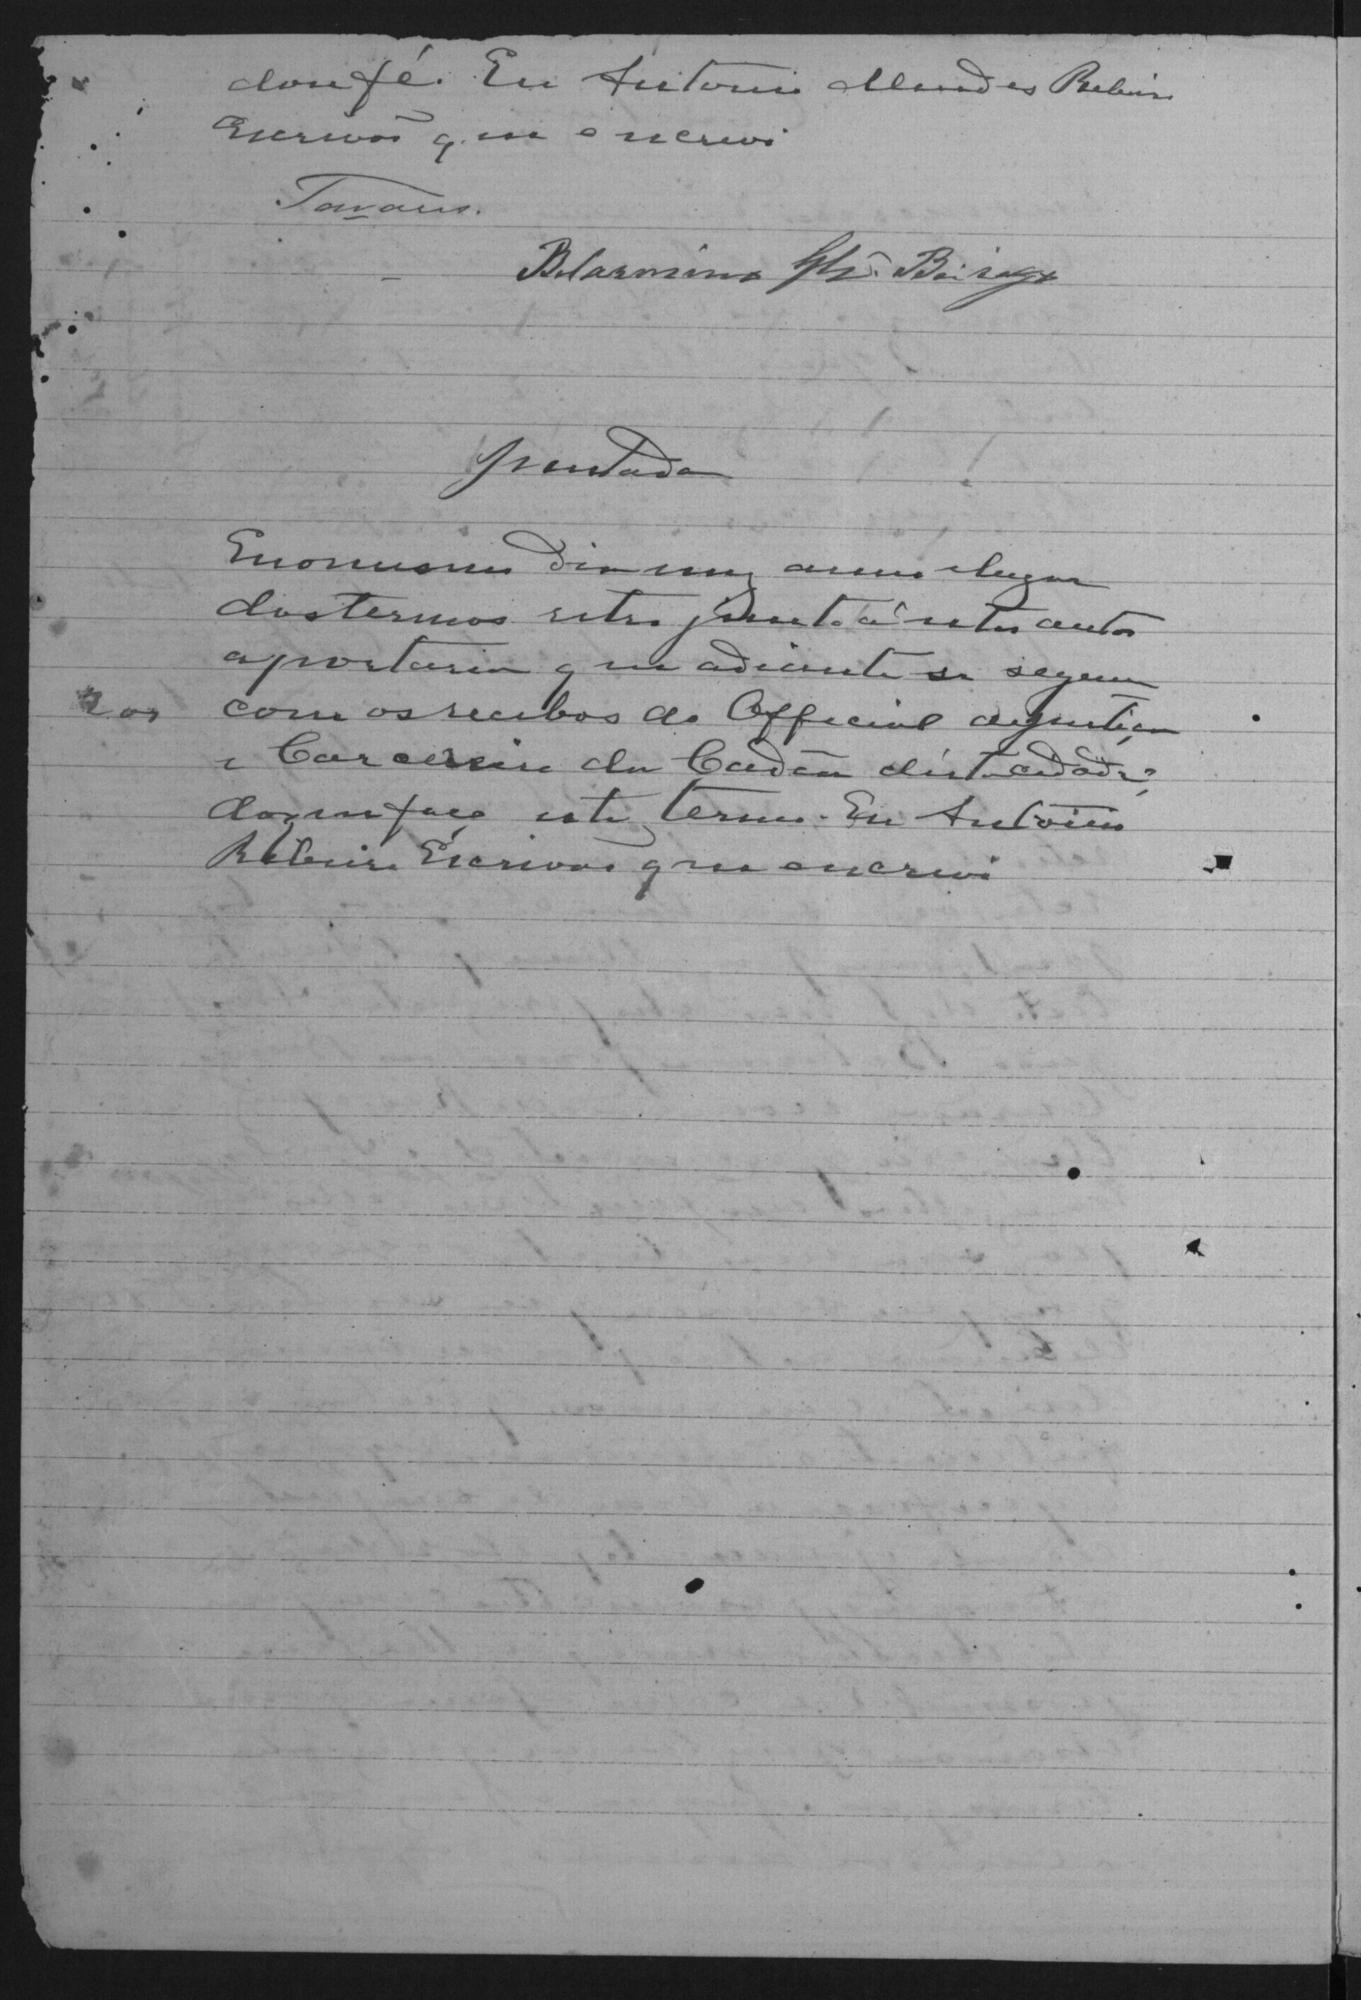 dou fé. Eu Antonio Mendes Ribeiro
Escrivão que escrevi
Tavares.
Belarmino Glz. Bairage
Juntada
E no mesmo dia mez anno e lugar
dos termos retro junto á estes autos
a portaria que adiante se seguem
200
com os recibos do Official de justiça
e Carcereiro da Cadêa désta cidade;
do que faço este termo. Eu Antonio
Ribeiro Escrivão que escrevi